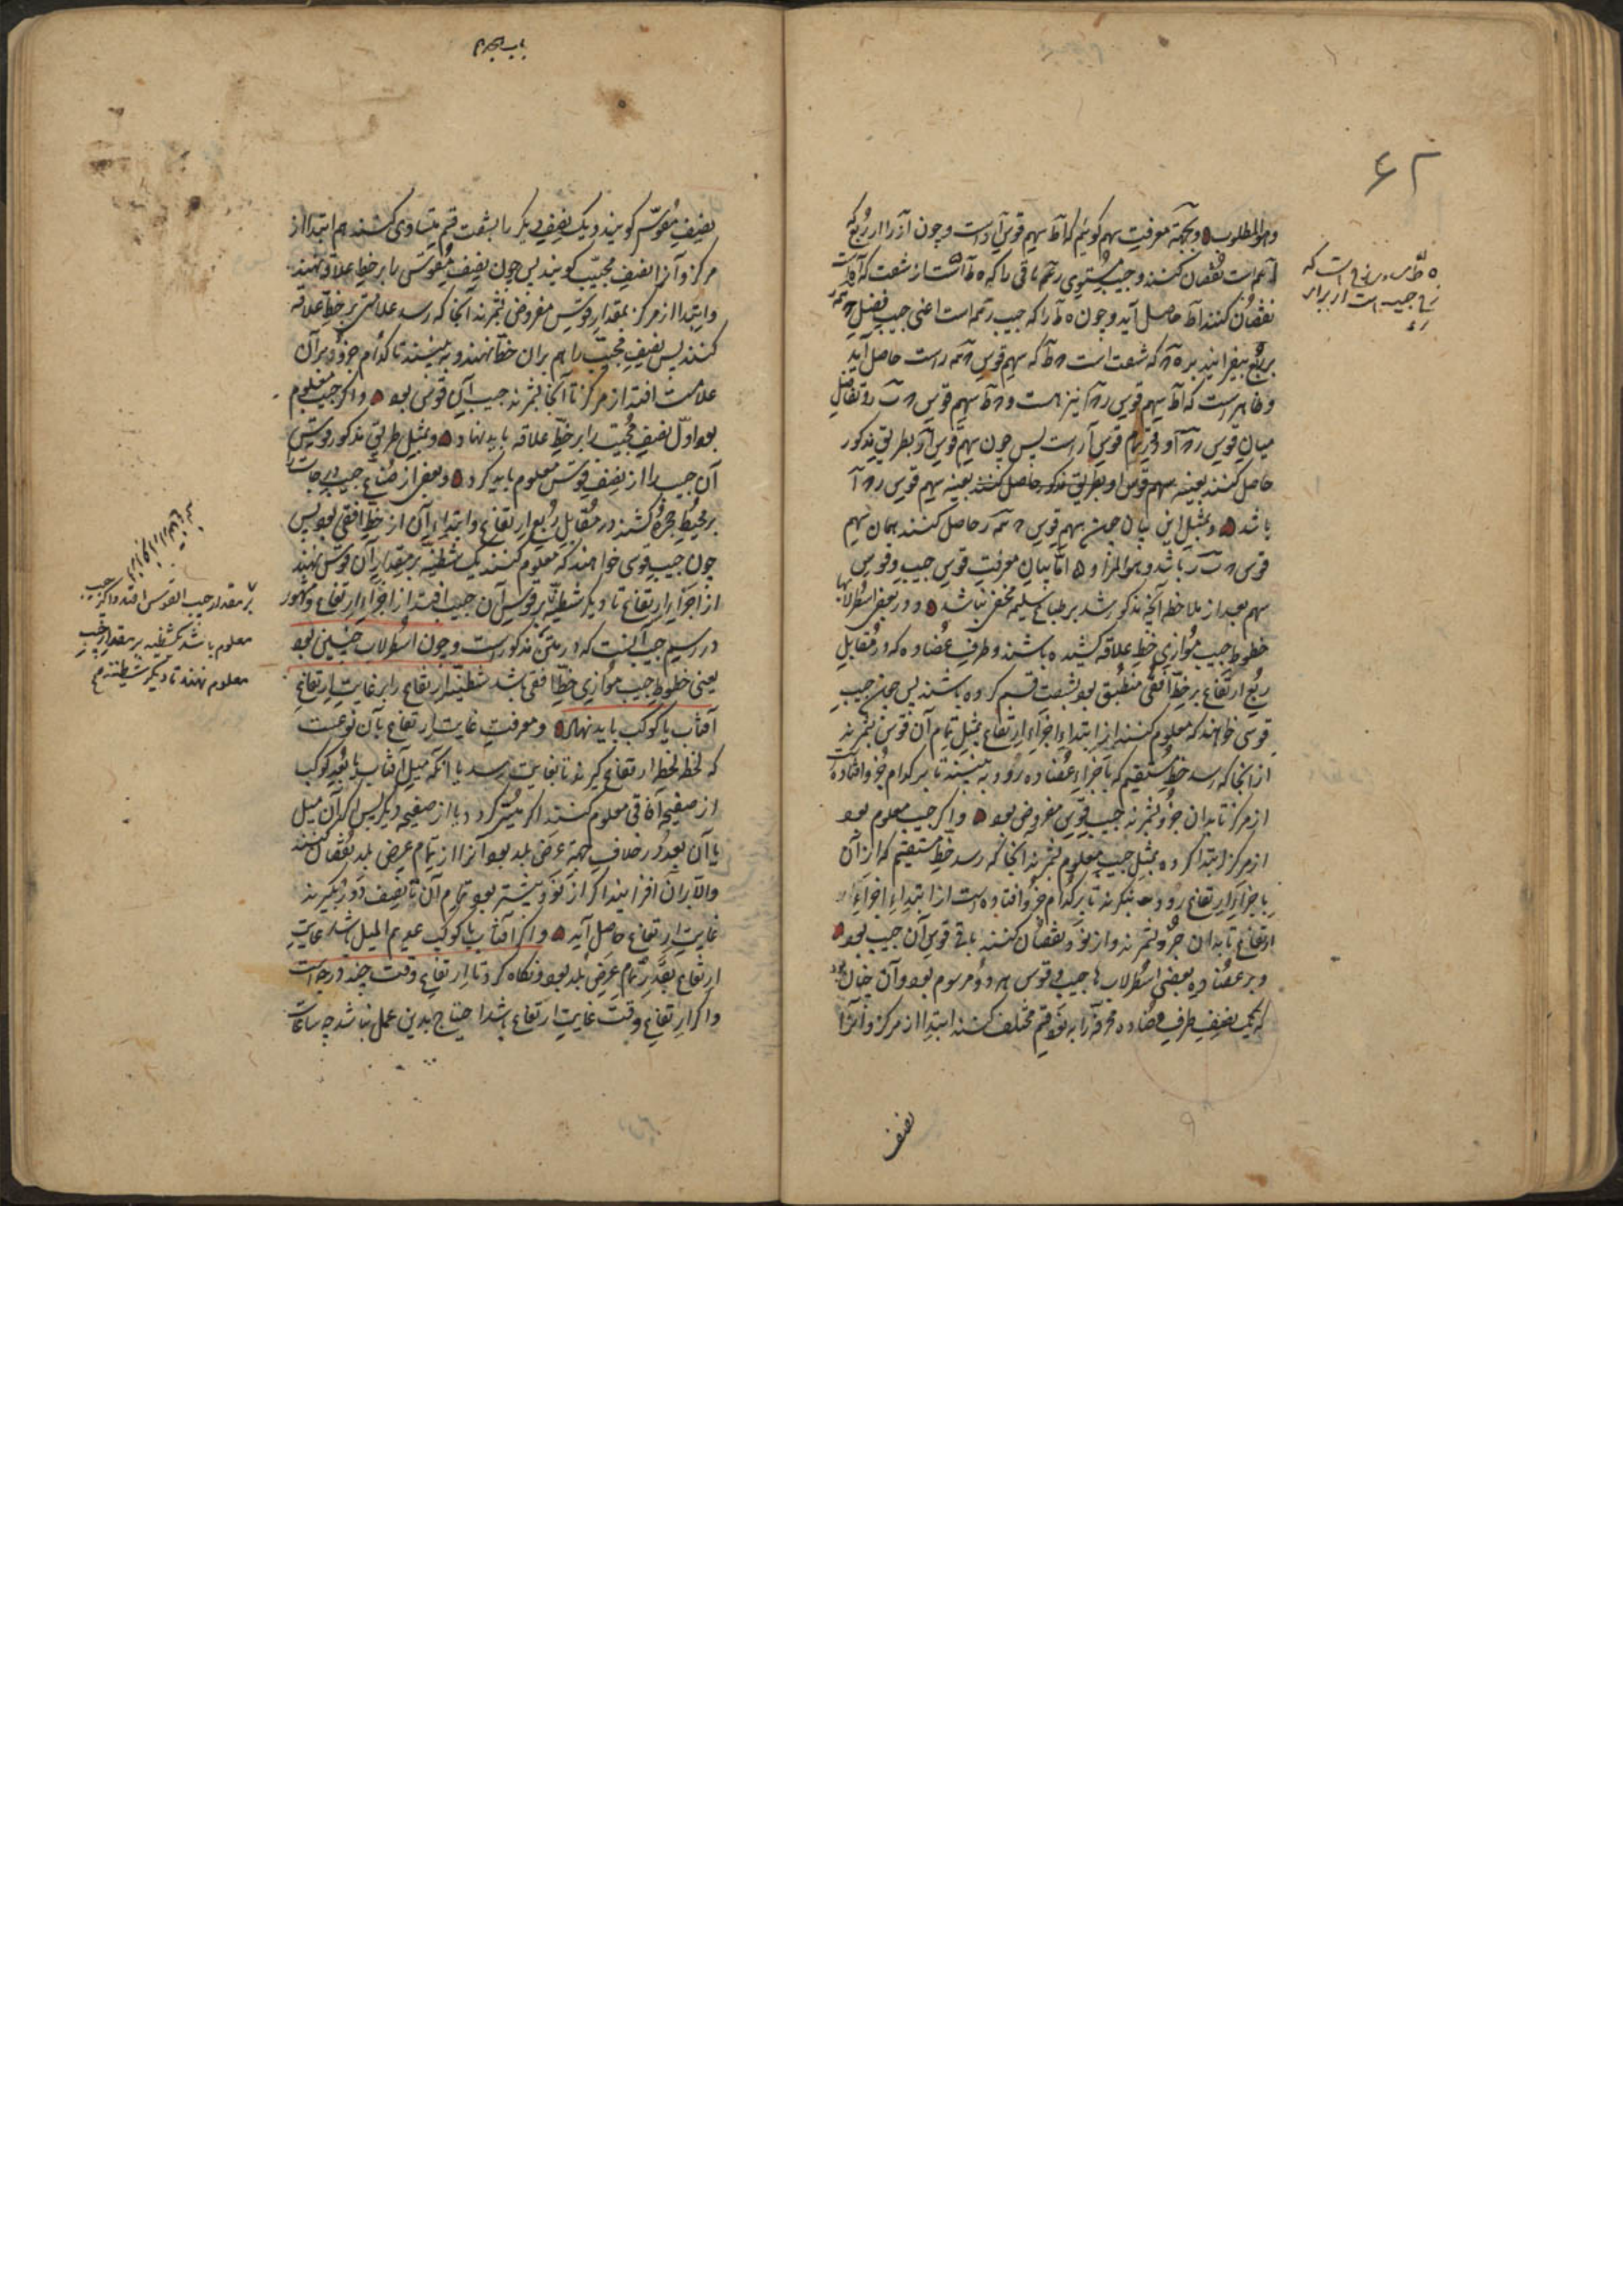 ۶۲
وهو المطلوب و بجهة معرفت سهم کوئیم که آط سهم قوس آد است و چون آنرا از ربع که
است نقصان کنند و جیب مستوی باقی را که ه ط است از شصت که
نقصان کنند آط حاصل آید و چون ه ط را که جیب است اعنی جیب فضل
بر ربع بیفزایند بر ه که شصت است ط که سهم قوس است حاصل آید
و ظاهر است که آط سهم قوس نیز هست و ط سهم قوس و تفاضل
میان قوس و تمام قوس است پس چون سهم قوس بطریق مذکور
حاصل کنند بعینه سهم قوس او بطریق مذکور حاصل کنند بعینه سهم قوس
باشد و بمثل این بیان چون سهم قوس حاصل کنند همان سهم
قوس باشد و هو المراد اما بیان معرفت قوس جیب و قوس
سهم بعد از ملاحظه آنچه مذکور شد بر طباع سلیم مخفی نباشد و در بعضی اسطرلابها
خطوط جیب موازی خط علاقه کشیده باشند و طرف عضاده که در مقابل
ربع ارتفاع بر خط افقی منطبق بود بشصت قسم کرده باشند پس چون جیب
قوسی خواهند که معلوم کنند از ابتداء اجزاء ارتفاع بمثل تمام آن قوس بشمرند
از آنجا که رسد خط مستقیم که باجزاء عضاده رود به بینند تا بر کدام جزو افتاده است
از مرکز تا بدان جزو بشمرند جیب قوس مفروض بود و اکر جیب معلوم بود
از مرکز ابتدا کرده بمثل جیب معلوم بشمرند آنجا که رسد خط مستقیم که از آن
باجزاء ارتفاع رود بنکرند تا بر کدام جزو افتاده است از ابتداء اجزاء
ارتفاع تا بدان جزو بشمرند و از نود نقصان کنند باقی قوس آن جیب بود
و بر عضاده بعضی اسطرلاب ها جیب و قوس هر دو مرسوم بود و آن چنان بود
که یک نصف طرف عضاده محرفه را به نود قسم مختلف کنند ابتدا از مرکز و آنرا
نصف
ه ط است که
جیب است از برابر
باب
نصف مقوس کویند و یک نصف دیکر را بشصت قسم متساوی کنند هم ابتدا از
مرکز و آنرا نصف مجیب کویند پس چون نصف مقوس را بر خط علاقه نهند
و ابتدا از مرکز بمقدار قوس مفروض بشمرند آنجا که رسد علامتی بر خط علاقه
کنند پس نصف مجیب را هم بران خط نهند و به بینند تا کدام جزو بر آن
علامت افتد از مرکز تا آنجا بشمرند جیب آن قوس بود و اکر جیب معلوم
بود اول نصف مجیب را بر خط علاقه باید نهاد و بمثل طریق مذکور قوس
آن جیب را از نصف قوس معلوم باید کرد و بعضی از صناع جیب درجات را
بر محیط حجره کشند در مقابل ربع ارتفاع و ابتداء آن از خط افقی بود پس
چون جیب قوسی خواهند که معلوم کنند یک شظیه بر مقدار آن قوس نهند
از اجزاء ارتفاع تا دیکر شظیه بر قوس آن جیب افتد از اجزاء ارتفاع و مشهور
در رسم جیب آنست که در متن مذکور است و چون اسطرلاب چنین بود
یعنی خطوط جیب موازی خط افقی باشد شظیه ارتفاع را بر غایت ارتفاع
آفتاب یا کوکب باید نهاد و معرفت غایت ارتفاع بآن نوعست
که لحظه لحظه ارتفاع کیرند تا بغایت رسد یا آنکه میل آفتاب یا بعد کوکب
از صفیحه آفاقی معلوم کنند اکر میسر کردد یا از صفیحه دیکر پس اکر آن میل
یا آن بعد در خلاف جهة عرض بلد بود آنرا از تمام عرض بلد نقصان کنند
والا بران افزایند اکر از نود بیشتر بود تمام آن تا نصف دور بکیرند
غایت ارتفاع حاصل آید و اکر آفتاب یا کوکب عدیم المیل باشد غایت
ارتفاع بقدر تمام عرض بلد بود و نکاه کرد تا ارتفاع وقت چند درجه است
و اکر ارتفاع وقت غایت ارتفاع باشد احتیاج بدین عمل نباشد چه ساعات
بر مقدار جیب القوس افتد و اکر جیب
معلوم باشد یک شظیه بر مقدار جیب
معلوم نهند تا دیکر شظیه